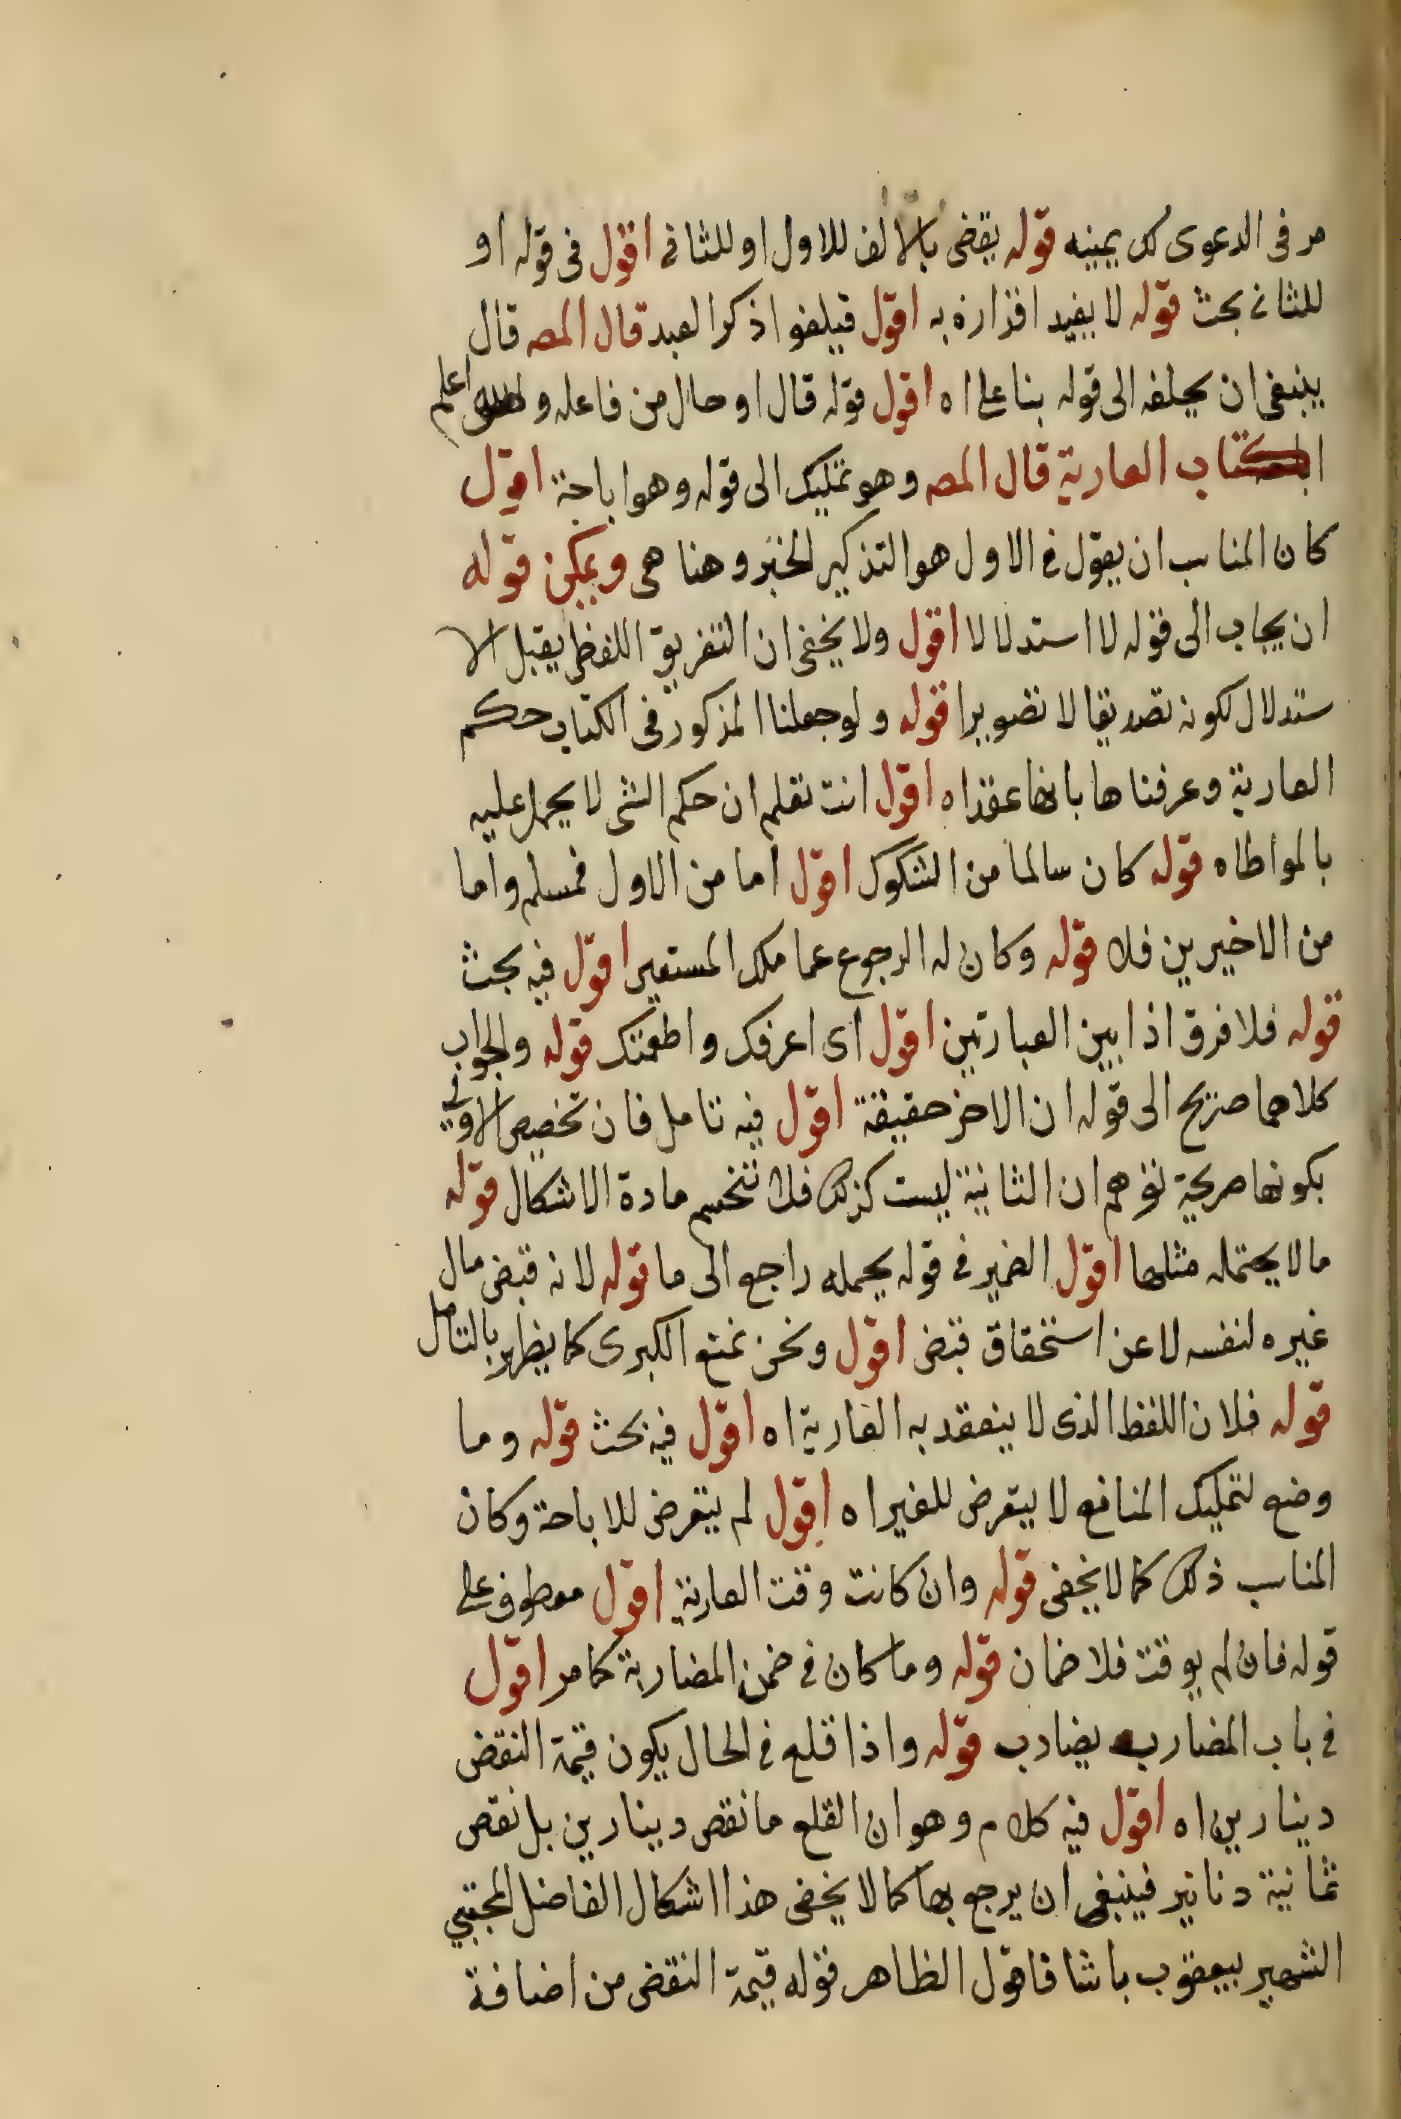 مر فى الدعوى كل يمينه قوله يقضى بالالف للاول او للثانى اقول فى قوله او
للثانى بحث قوله لا يفيد اقراره به اقول فيلغو ذكر العبد قال المصه قال
ينبغى ان يحلفه الى قوله بناء على اه اقول قوله قال او حال من فاعله و اعلم
كتاب العارية قال المصه وهو تمليك الى قوله وهو اباحة اقول
كان المناسب ان يقول فى الاول هو التذكير الخبر وهنا هى ويمكن قوله
ان يجاب الى قوله لا استدلالا اقول ولا يخفى ان التفريق اللفظى يقبل الا
ستدلال لكونه تصديقا لا تصويرا قوله ولو جعلنا المذكور فى الكتاب حكم
العارية وعرفناها بانها عقد اه اقول انت تعلم ان حكم الشئ لا يحمل عليه
بالمواطاه قوله كان سالما من الشكوك اقول اما من الاول فمسلم واما
من الاخيرين فلا قوله وكان له الرجوع عما ملك المستعير اقول فيه بحث
قوله فلا فرق اذا بين العبارتين اقول اى اعرفك واطعمتك قوله والجواب
كلاهما صريح الى قوله ان الاخر حقيقة اقول فيه تامل فان تخصيص الاولى
بكونها صريحة توهم ان الثانية ليست كذلك فلا تنحسم مادة الاشكال قوله
ما لا يحتمله مثلها اقول الضمير فى قوله يحمله راجع الى ما قوله لانه قبض مال
غيره لنفسه لا عن استحقاق قبض اقول ونحن نمنع الكبرى كما يظهر بالتامل
قوله فلان اللفظ الذى لا ينعقد به العارية اه اقول فيه بحث قوله وما
وضع لتمليك المنافع لا يتعرض للغير اه اقول لم يتعرض للاباحة وكان
المناسب ذلك كما لا يخفى قوله وان كانت وقت العارية اقول معطوف على
قوله فان لم يوقت فلا ضمان قوله وما كان فى ضمن المضاربة كما مر اقول
فى باب المضارب يضارب قوله واذا قلع فى الحال يكون قيمة النقض
دينارين اه اقول فيه كلام وهو ان القلع ما نقص دينارين بل نقص
ثمانية دنانير فينبغى ان يرجع بها كما لا يخفى هذا اشكال الفاضل المحتبى
الشهير بيعقوب باشا فاقول الظاهر قوله قيمة النقض من اضافة